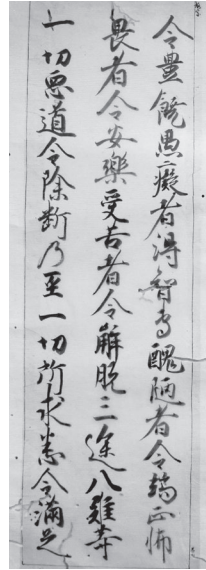 令豊饒愚癡者得智恵醜陋者令端正怖
畏者令安樂受苦者令解脱三途八難等
一切悪道令除断乃至一切所求悉令満足